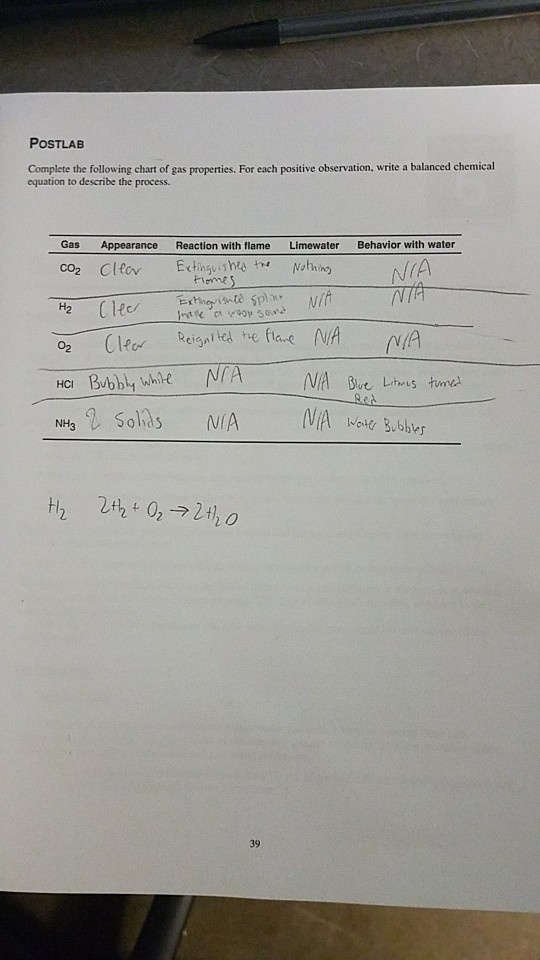 POSTLAB
Complete the following chart of gas properties. For each positive observation, write a balanced chemical
equation to describe the process.
Gas Appearance Reaction with flame Limewater Behavior with water
CO₂ Clear Extinguished the flames Nothing N/A
H₂ Clear Extinguished splint made a woop sound N/A N/A
O₂ Clear Reignited the flame N/A N/A
HCl Bubbly white N/A N/A Blue Litmus turned Red
NH₃ 2 Solids N/A N/A Water Bubbles
H₂ 2H₂ + O₂ → 2H₂O
39